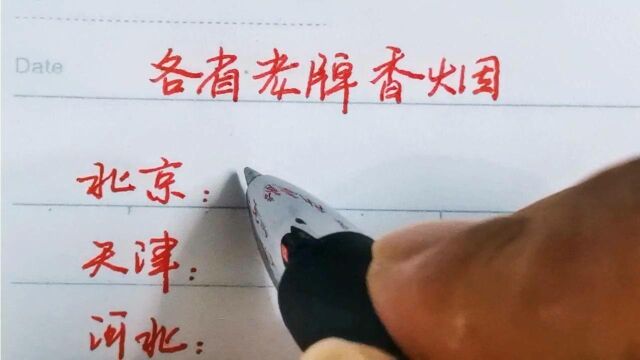 Date
各省老牌香烟
北京：
天津：
河北：